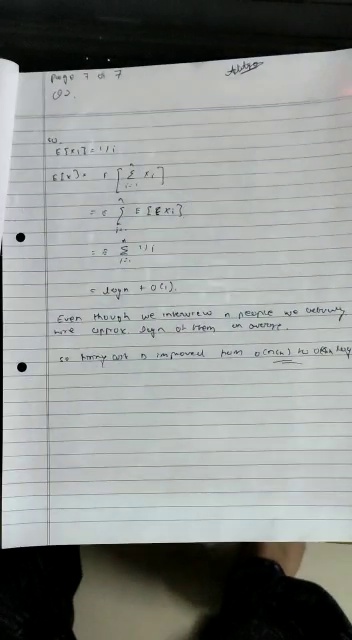 Page 7 of 7
Q2.
so,
E[xi] = 1/i
E[x] = E [ n Σ i=1 xi ]
= ε n Σ i=1 E [ε xi]
= ε n Σ i=1 1/i
= logn + O(1).
Even though we interview n people we actually
hire approx. logn of them on average.
so hiring cost is improved from O(nch) to